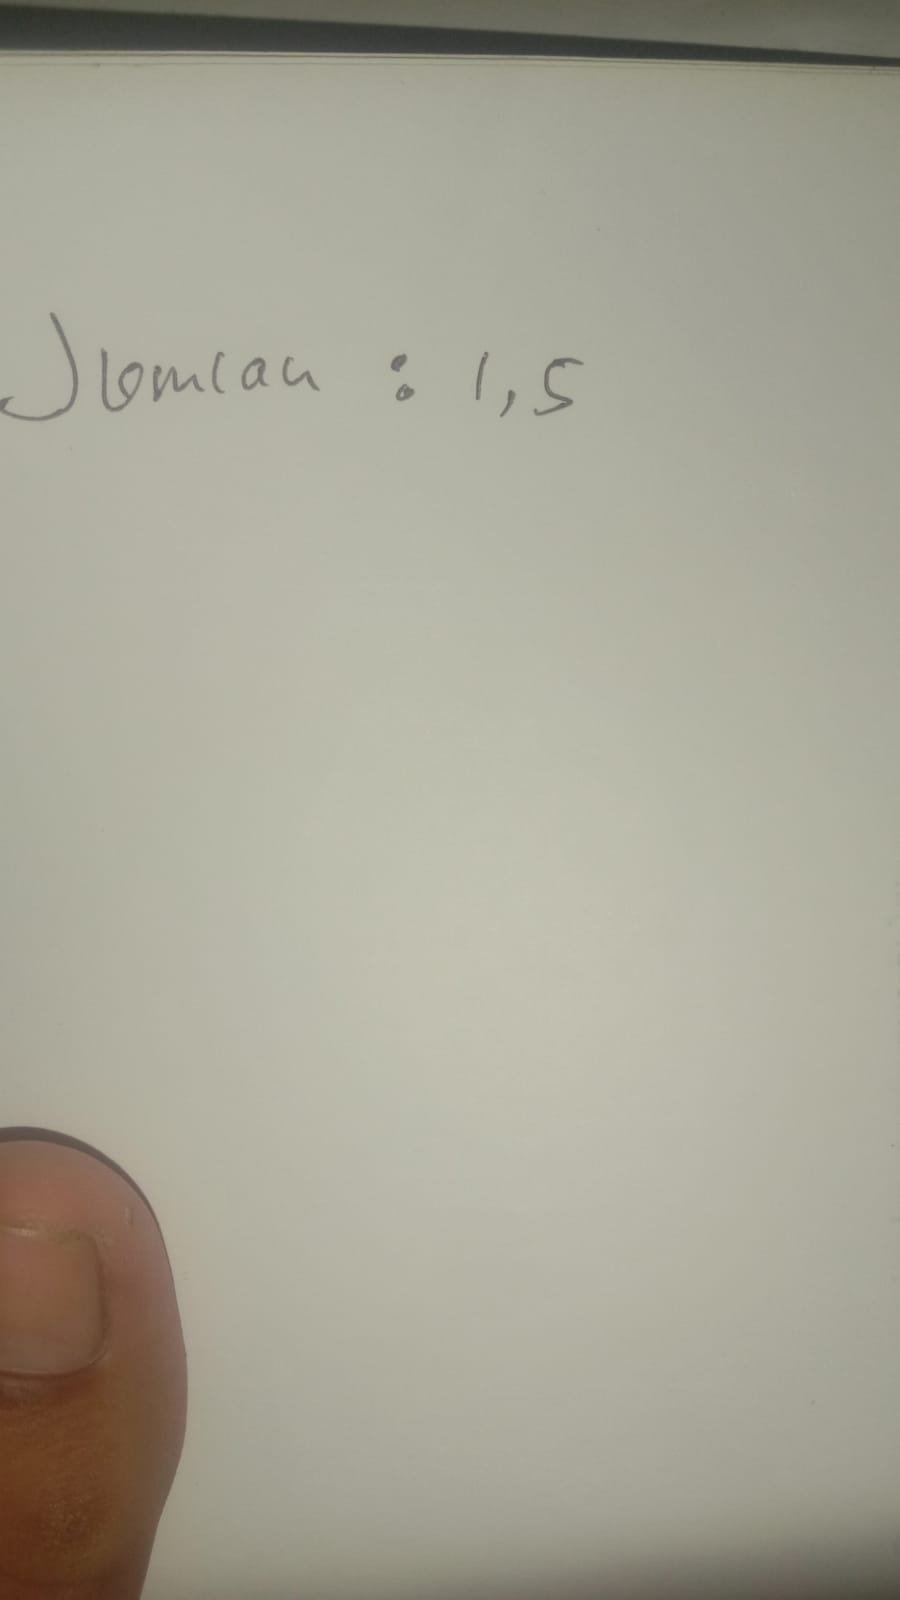 Jumlah : 1,5